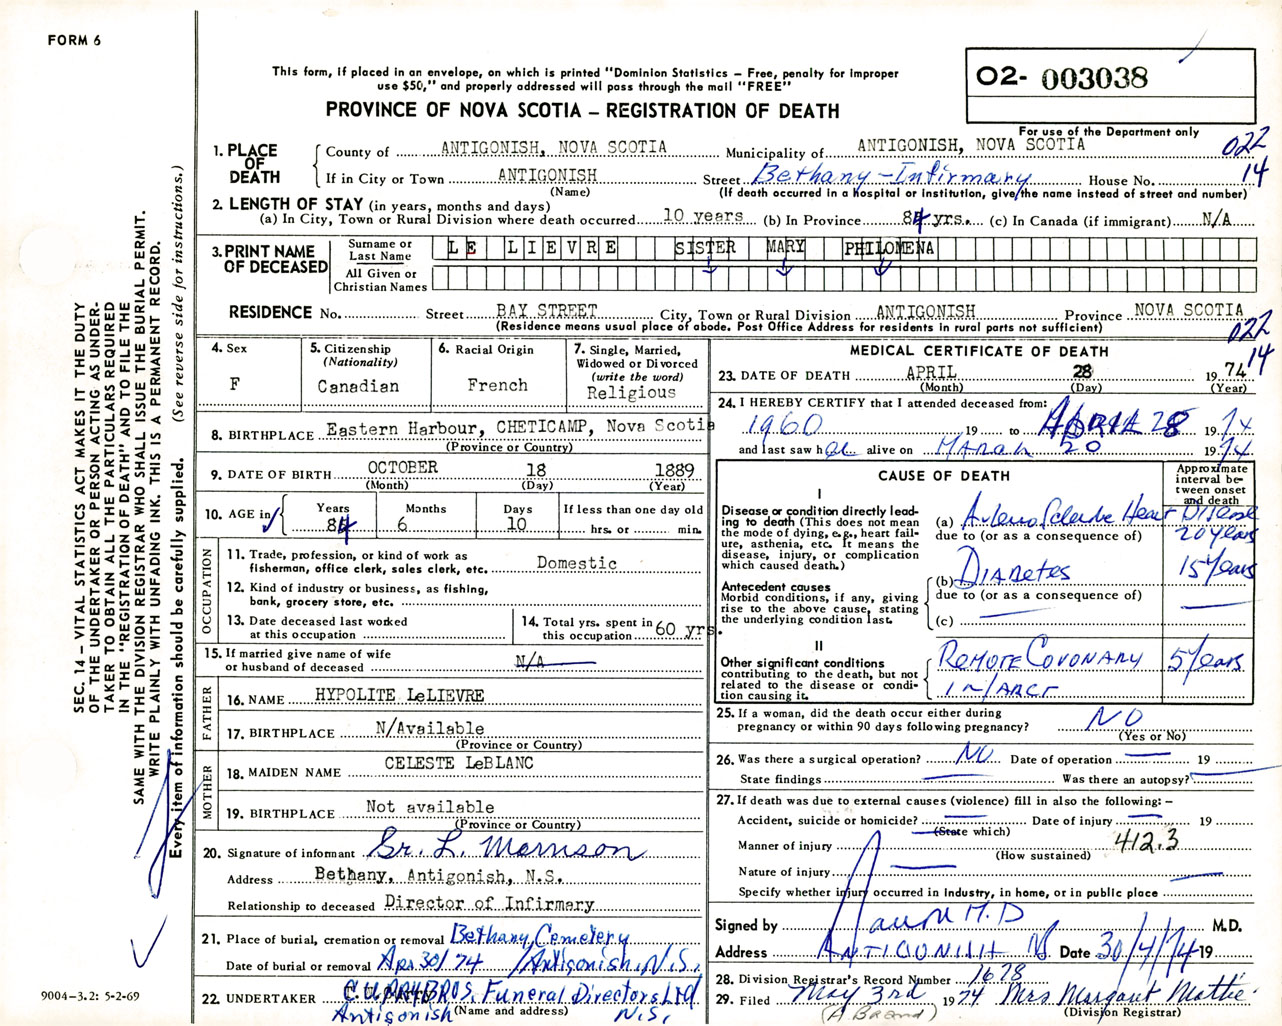 FORM 6
This form, if placed in an envelope, on which is printed "Dominion Statistics – Free, penalty for improper
use $50," and properly addressed will pass through the mail "FREE"
PROVINCE OF NOVA SCOTIA – REGISTRATION OF DEATH
02- 003038
For use of the Department only
022
14
1. PLACE OF DEATH
County of ANTIGONISH, NOVA SCOTIA Municipality of ANTIGONISH, NOVA SCOTIA
If in City or Town ANTIGONISH Street Bethany-Infirmary House No.
(Name) (If death occurred in a hospital or institution, give the name instead of street and number)
2. LENGTH OF STAY (in years, months and days)
(a) In City, Town or Rural Division where death occurred 10 years (b) In Province 84 yrs. (c) In Canada (if immigrant) N/A
3. PRINT NAME OF DECEASED
Surname or Last Name LE LIEVRE SISTER MARY PHILOMENA
All Given or Christian Names
RESIDENCE No. Street BAY STREET City, Town or Rural Division ANTIGONISH Province NOVA SCOTIA
(Residence means usual place of abode. Post Office Address for residents in rural parts not sufficient)
022
14
4. Sex
F
5. Citizenship
(Nationality)
Canadian
6. Racial Origin
French
7. Single, Married,
Widowed or Divorced
(write the word)
Religious
8. BIRTHPLACE Eastern Harbour, CHETICAMP, Nova Scotia
(Province or Country)
9. DATE OF BIRTH OCTOBER 18 1889
(Month) (Day) (Year)
10. AGE in
Years Months Days If less than one day old
84 6 10 hrs. or min.
OCCUPATION
11. Trade, profession, or kind of work as
fisherman, office clerk, sales clerk, etc. Domestic
12. Kind of industry or business, as fishing,
bank, grocery store, etc.
13. Date deceased last worked
at this occupation
14. Total yrs. spent in
this occupation 60 yrs.
15. If married give name of wife
or husband of deceased N/A
FATHER
16. NAME HYPOLITE LeLIEVRE
17. BIRTHPLACE N/Available
(Province or Country)
MOTHER
18. MAIDEN NAME CELESTE LeBLANC
19. BIRTHPLACE Not available
(Province or Country)
20. Signature of informant Sr. L. Morrison
Address Bethany, Antigonish, N.S.
Relationship to deceased Director of Infirmary
21. Place of burial, cremation or removal Bethany Cemetery
Date of burial or removal Apr. 30/74 /Antigonish, N.S.
22. UNDERTAKER C.U. BROS. Funeral Directors Ltd.
(Name and address)
Antigonish N.S.
MEDICAL CERTIFICATE OF DEATH
23. DATE OF DEATH APRIL 28 1974
(Month) (Day) (Year)
24. I HEREBY CERTIFY that I attended deceased from:
1960 19 to APRIL 28 1974
and last saw her alive on March 20 1974
CAUSE OF DEATH
Approximate
interval be-
tween onset
and death
I
Disease or condition directly lead-
ing to death (This does not mean
the mode of dying, e.g., heart fail-
ure, asthenia, etc. It means the
disease, injury, or complication
which caused death.)
(a) Arterio Sclerotic Heart Disease 20 years
due to (or as a consequence of)
Antecedent causes
Morbid conditions, if any, giving
rise to the above cause, stating
the underlying condition last.
(b) Diabetes 15 years
due to (or as a consequence of)
(c)
II
Other significant conditions
contributing to the death, but not
related to the disease or condi-
tion causing it.
Remote Coronary 5 years
Infarct
25. If a woman, did the death occur either during
pregnancy or within 90 days following pregnancy? NO
(Yes or No)
26. Was there a surgical operation? NO Date of operation 19
State findings Was there an autopsy?
27. If death was due to external causes (violence) fill in also the following: –
Accident, suicide or homicide? Date of injury 19
(State which)
Manner of injury 412.3
(How sustained)
Nature of injury
Specify whether injury occurred in industry, in home, or in public place
Signed by M.D. M.D.
Address ANTIGONISH NS Date 30/4/74 19
28. Division Registrar's Record Number 1678
29. Filed May 3rd 1974 Mrs. Margaret
(Division Registrar)
SEC. 14 – VITAL STATISTICS ACT MAKES IT THE DUTY
OF THE UNDERTAKER OR PERSON ACTING AS UNDER-
TAKER TO OBTAIN ALL THE PARTICULARS REQUIRED
IN THE "REGISTRATION OF DEATH" AND TO FILE THE
SAME WITH THE DIVISION REGISTRAR WHO SHALL ISSUE THE BURIAL PERMIT.
WRITE PLAINLY WITH UNFADING INK. THIS IS A PERMANENT RECORD.
Every item of information should be carefully supplied. (See reverse side for instructions.)
9004-3.2: 5-2-69